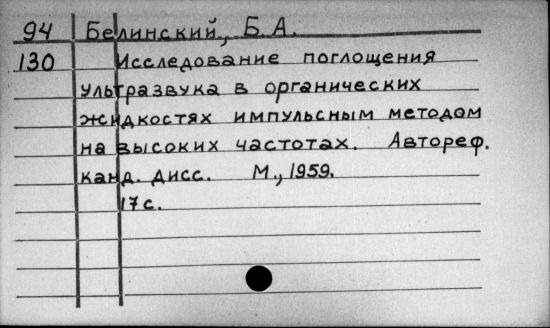 94 Белинский, Б.А.
130 Исследование поглощения
ультразвука в органических
жидкостях импульсным методом
на высоких частотах. Автореф.
канд. дисс. М., 1959.
17с.